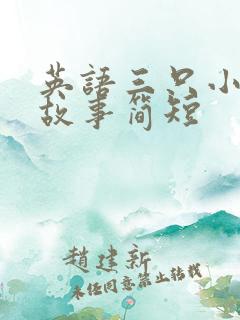 英語三只小
故事简短
趙建新
未経同意禁止转载